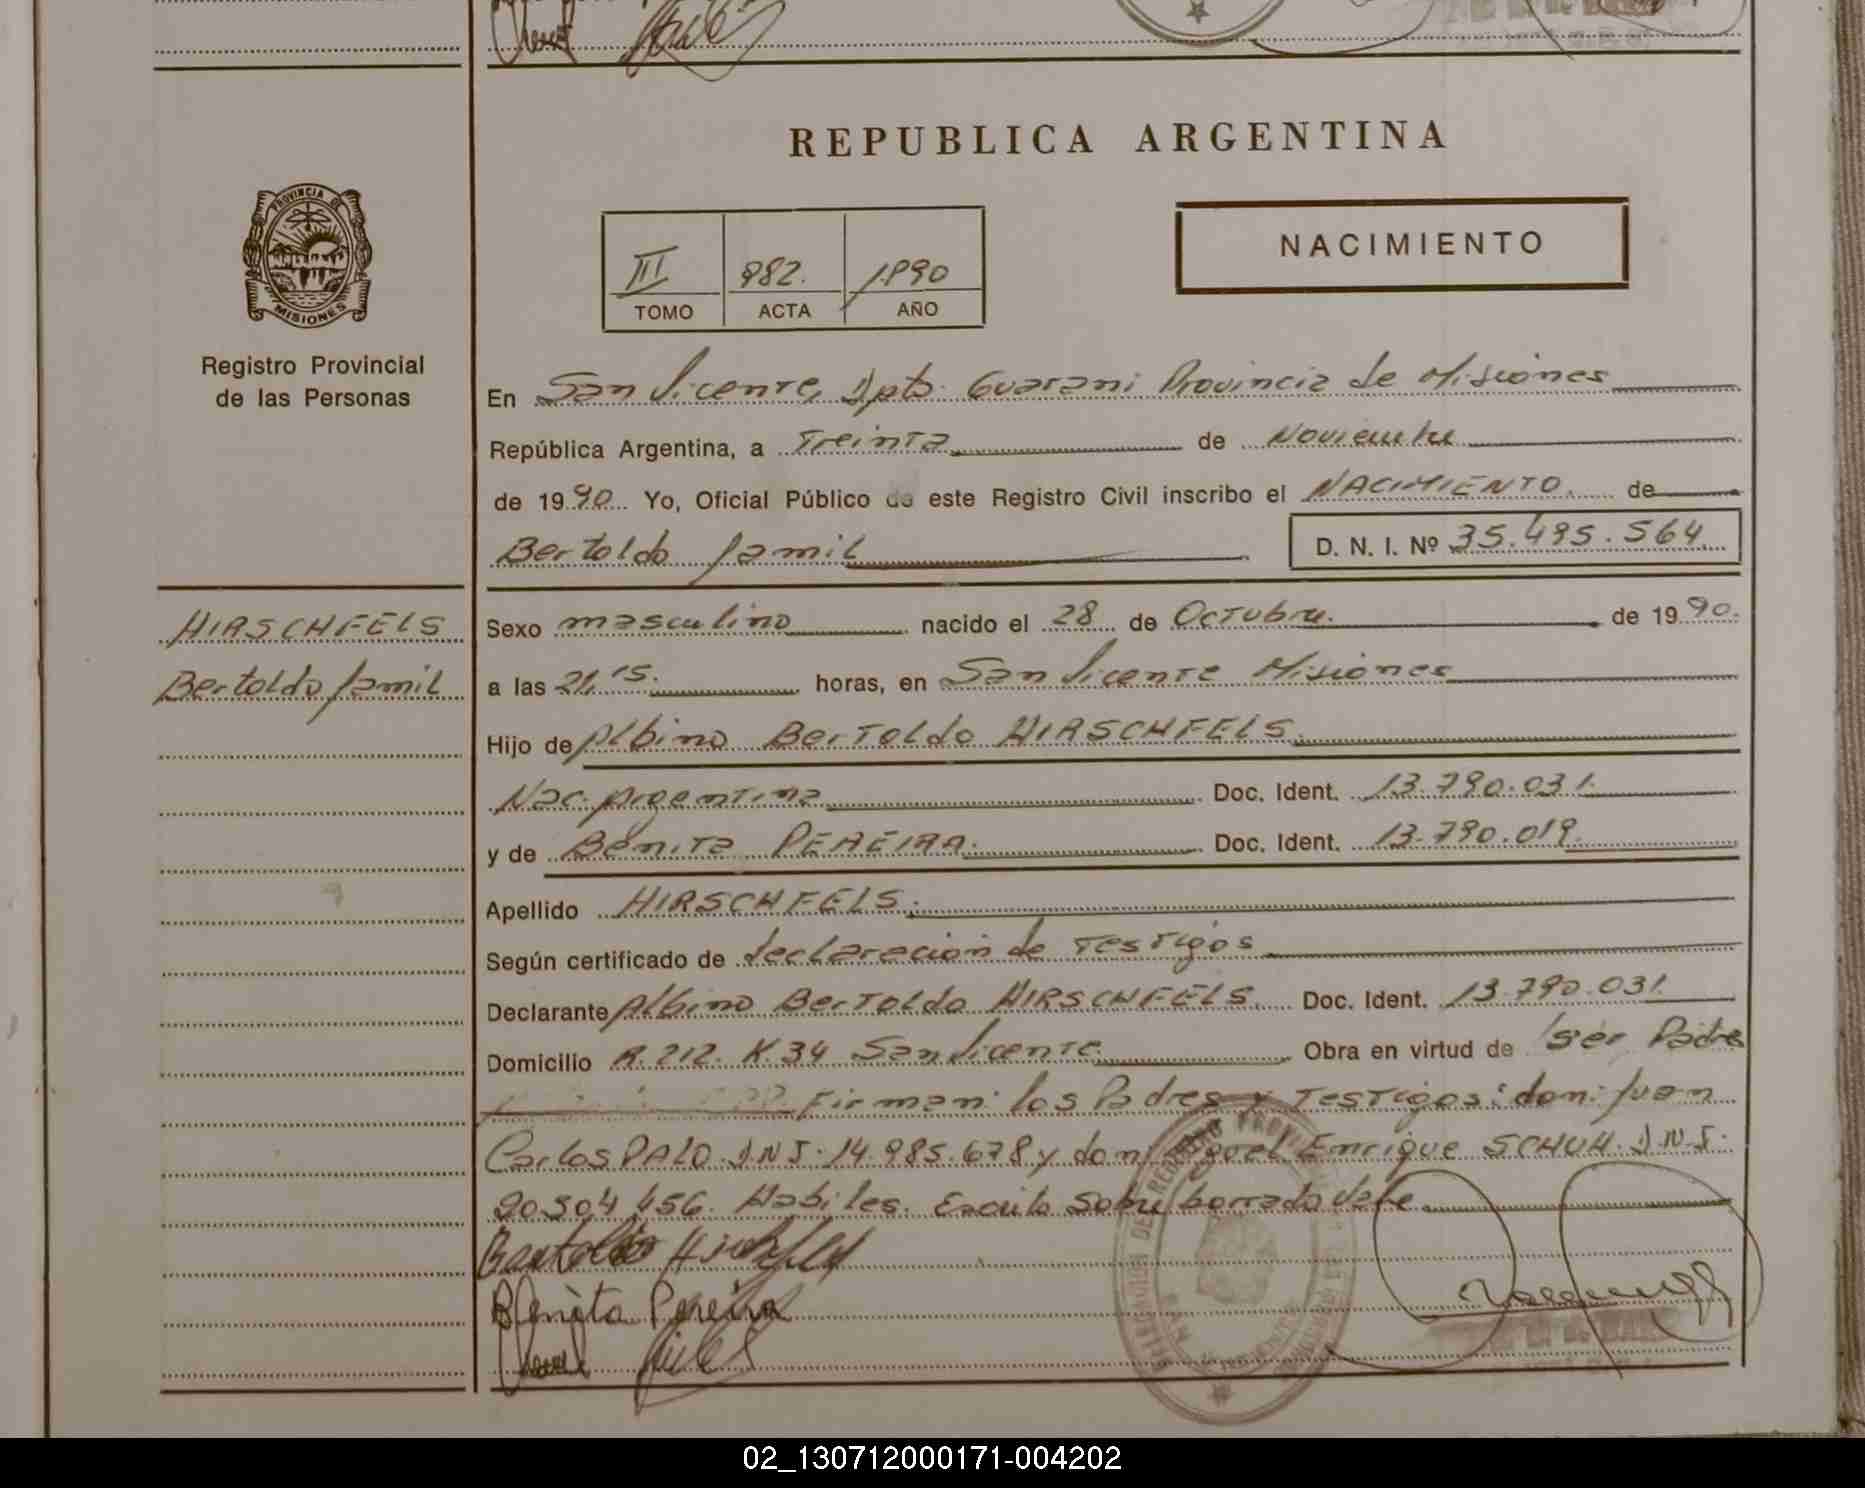 REPUBLICA ARGENTINA
PROVINCIA DE
MISIONES
Registro Provincial
de las Personas
III 982. 1990
TOMO ACTA AÑO
NACIMIENTO
En San Vicente, Dpto. Guarani Provincia de Misiones
República Argentina, a Treinta de Noviembre
de 1990 Yo, Oficial Público de este Registro Civil inscribo el NACIMIENTO. de
Bertoldo Jamil D. N. I. Nº 35.495.564
HIRSCHFELS
Bertoldo Jamil
Sexo masculino nacido el 28 de Octubre. de 1990.
a las 21,15. horas, en San Vicente Misiones
Hijo de Albino Bertoldo HIRSCHFELS.
Nac. Argentina Doc. Ident. 13.790.031.
y de Benita PEREIRA. Doc. Ident. 13.790.019.
Apellido HIRSCHFELS.
Según certificado de declaracion de Testigos
Declarante Albino Bertoldo HIRSCHFELS. Doc. Ident. 13.790.031.
Domicilio R.212. K.34 San Vicente. Obra en virtud de ser Padre
Firman: los Padres y Testigos: don: Juan
Carlos PALO. D.N.I. 14.985.678 y don Miguel Enrique SCHUH. D.N.I.
20.304.456. Habiles. Escrito Sobre borrado Vale.
Bertoldo Hirschfels
Benita Pereira
02_130712000171-004202